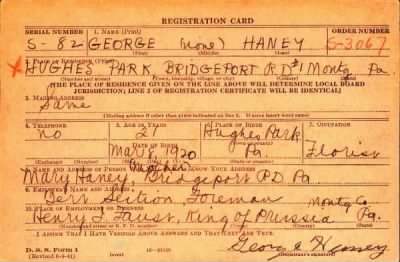 REGISTRATION CARD
SERIAL NUMBER 1. NAME (Print) ORDER NUMBER
S-82 GEORGE (none) HANEY S-3067
2. PLACE OF RESIDENCE (Print)
HUGHES PARK, BRIDGEPORT RD#1 Montg Pa
[THE PLACE OF RESIDENCE GIVEN ON THE LINE ABOVE WILL DETERMINE LOCAL BOARD
JURISDICTION; LINE 2 OF REGISTRATION CERTIFICATE WILL BE IDENTICAL]
3. MAILING ADDRESS
Same
[Mailing address if other than place indicated on line 2. If same insert word same]
4. TELEPHONE 5. AGE IN YEARS 6. PLACE OF BIRTH 7. OCCUPATION
no 21 Hughes Park
DATE OF BIRTH
Mar 8 1920 Pa. Florist
(Exchange) (Number) (Mo.) (Day) (Yr.) (State or country)
8. NAME AND ADDRESS OF PERSON WHO WILL ALWAYS KNOW YOUR ADDRESS
mother
Mary Haney, Bridgeport RD Pa.
9. EMPLOYER'S NAME AND ADDRESS
Foreman Montg Co
10. PLACE OF EMPLOYMENT OR BUSINESS
Henry F. Faust, King of Prussia Pa.
I AFFIRM THAT I HAVE VERIFIED ABOVE ANSWERS AND THAT THEY ARE TRUE.
George Haney
D. S. S. Form 1
(over)
(Registrant's signature)